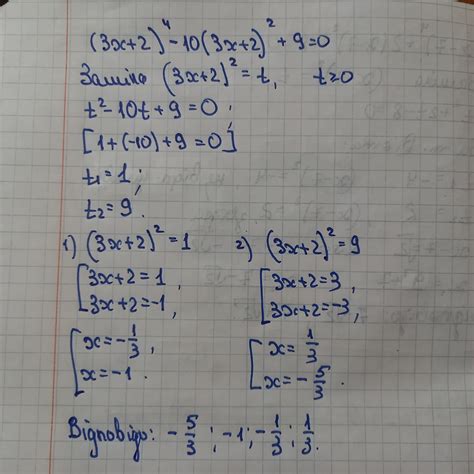 (3x+2)⁴-10(3x+2)²+9=0
Заміна (3x+2)²=t, t≥0
t²-10t+9=0;
[1+(-10)+9=0]
t₁=1;
t₂=9.
1) (3x+2)²=1 2) (3x+2)²=9
[3x+2=1, [3x+2=3,
3x+2=-1, 3x+2=-3,
[x=-1/3, [x=1/3
x=-1. x=-5/3.
Відповідь: -5/3; -1; -1/3; 1/3.